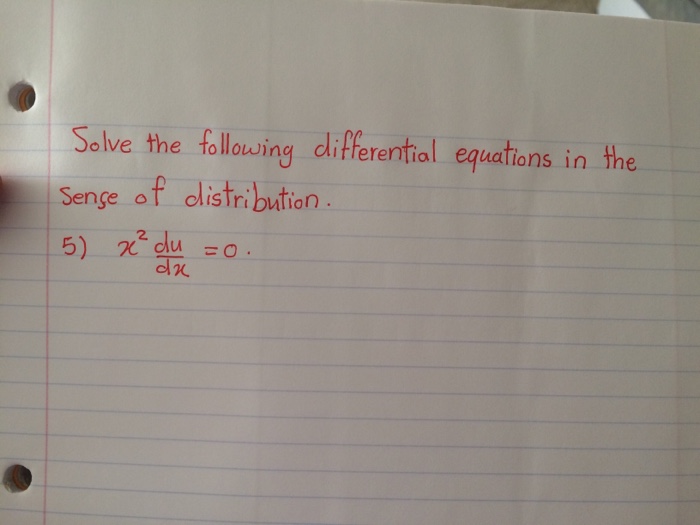 Solve the following differential equations in the
Sense of distribution.
5) x² du/dx = 0.